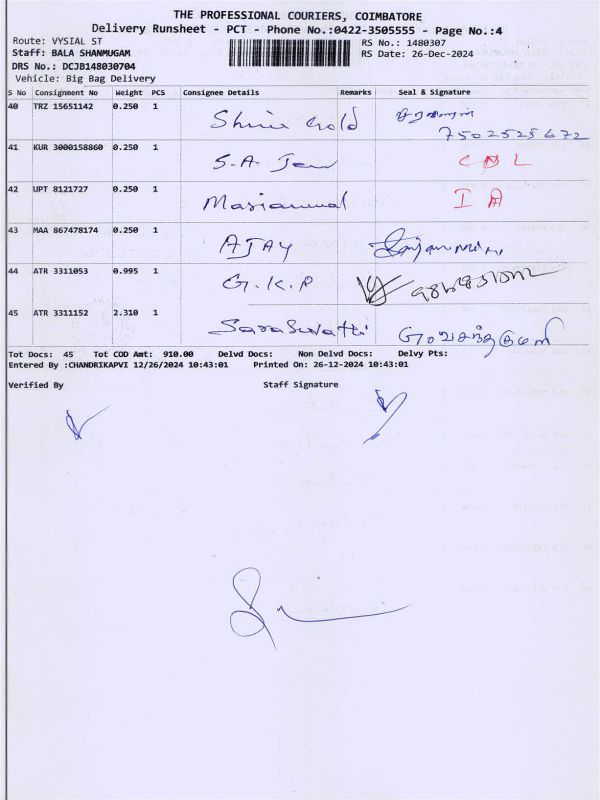 THE PROFESSIONAL COURIERS, COIMBATORE
Delivery Runsheet - PCT - Phone No.:0422-3505555 - Page No.:4
Route: VYSIAL ST RS No.: 1480307
Staff: BALA SHANMUGAM RS Date: 26-Dec-2024
DRS No.: DCJB148030704
Vehicle: Big Bag Delivery
S No Consignment No Weight PCS Consignee Details Remarks Seal & Signature
40 TRZ 15651142 0.250 1 Shine Gold
7502525672
41 KUR 3000158860 0.250 1 S.A Jew CNL
42 UPT 8121727 0.250 1 Mariammal I A
43 MAA 867478174 0.250 1 AJAY
44 ATR 3311053 0.995 1 G.K.P
45 ATR 3311152 2.310 1 Saraswathi
Tot Docs: 45 Tot COD Amt: 910.00 Delvd Docs: Non Delvd Docs: Delvy Pts:
Entered By :CHANDRIKAPVI 12/26/2024 10:43:01 Printed On: 26-12-2024 10:43:01
Verified By Staff Signature